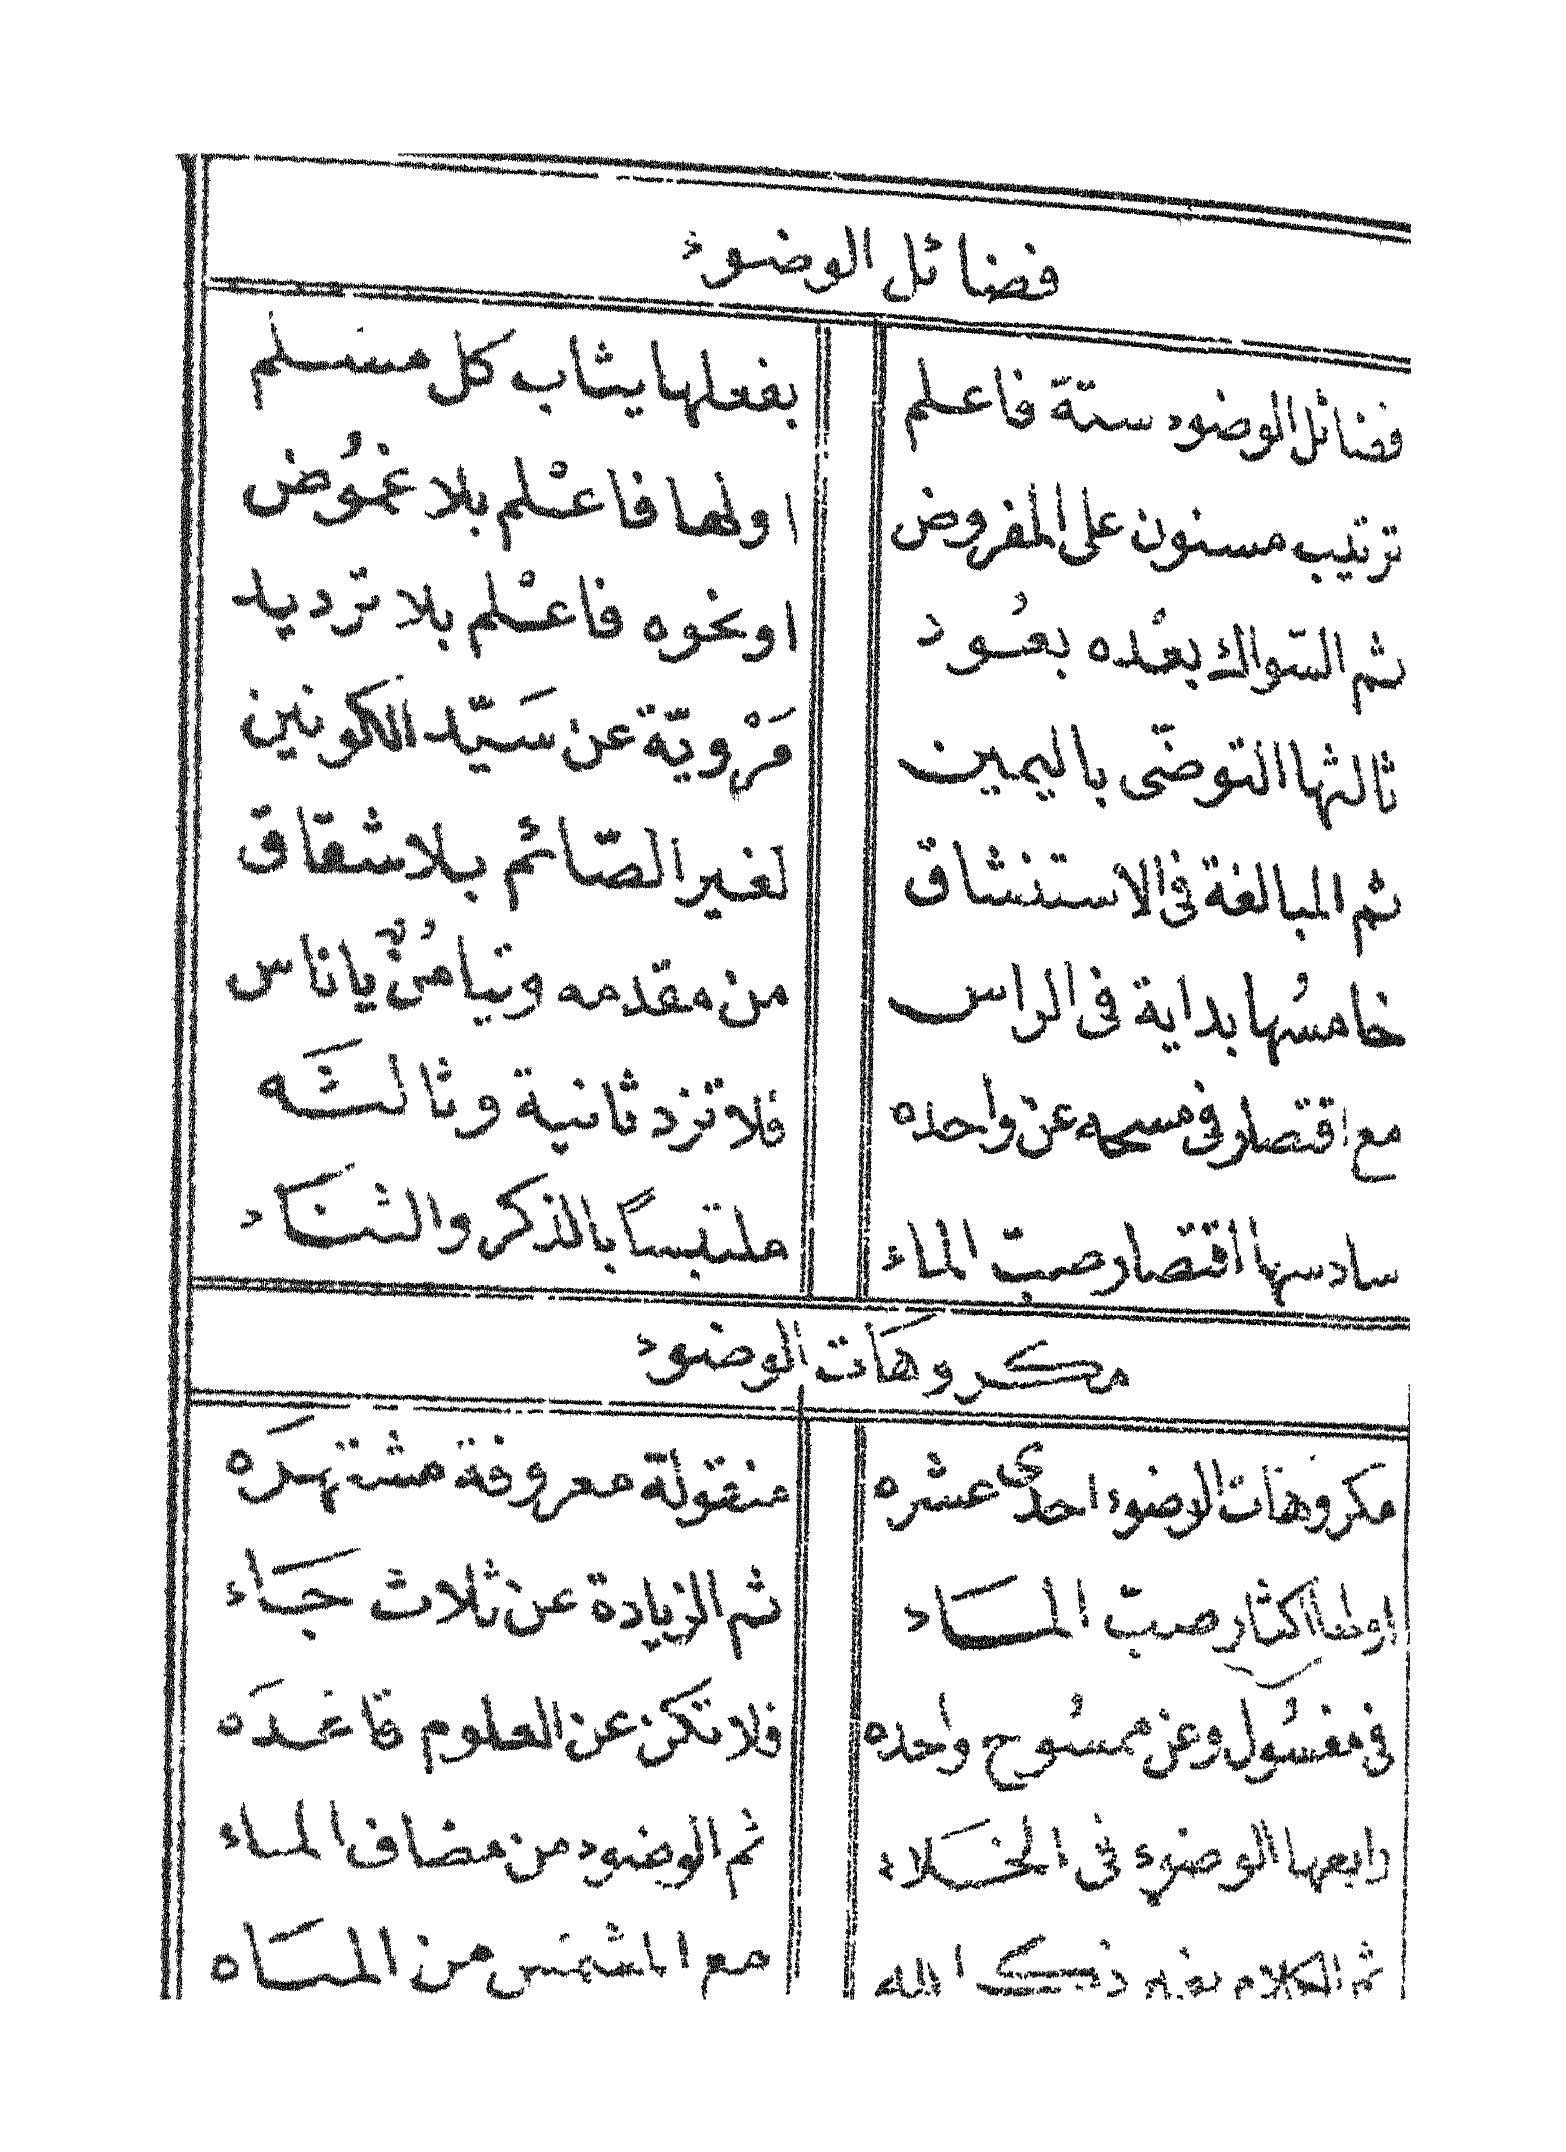 فضائل الوضوء
فضائل الوضوء ستة فاعلم بفعلها يثاب كل مسلم
ترتيب مسنون على المفروض اولها فاعْلم بلا غمُوض
ثم السواك بعْده بعُود اونحوه فاعْلم بلا ترديد
ثالثها التوضّى باليمين مَرْويّة عن سَيّد الكونين
ثم المبالغة فى الاستنشاق لغير الصّائم بلاشقاق
خامسُها بداية فى الراس من مقدمه وتيامُنٌ ياناس
مع اقتصار فى مسحه عن واحده فلا تزد ثانية وثالثَه
سادسها اقتصار صبّ الماء ملتبساً بالذكر والثنَاء
مكروهَات الوضوء
مكروهات الوضوء احدى عشره منقولة معروفة مشتهرَه
اولها اكثار صبّ المَاء ثم الزيادة عن ثلاث جَاء
فى مغسُول وعن ممسُوح واحده فلا تكن عن العلوم قاعدَه
رابعها الوضوء فى الخَلاء ثم الوضوء من مضاف الماء
ثم الكلام بغير ذكر الله مع المشمس من المَاه